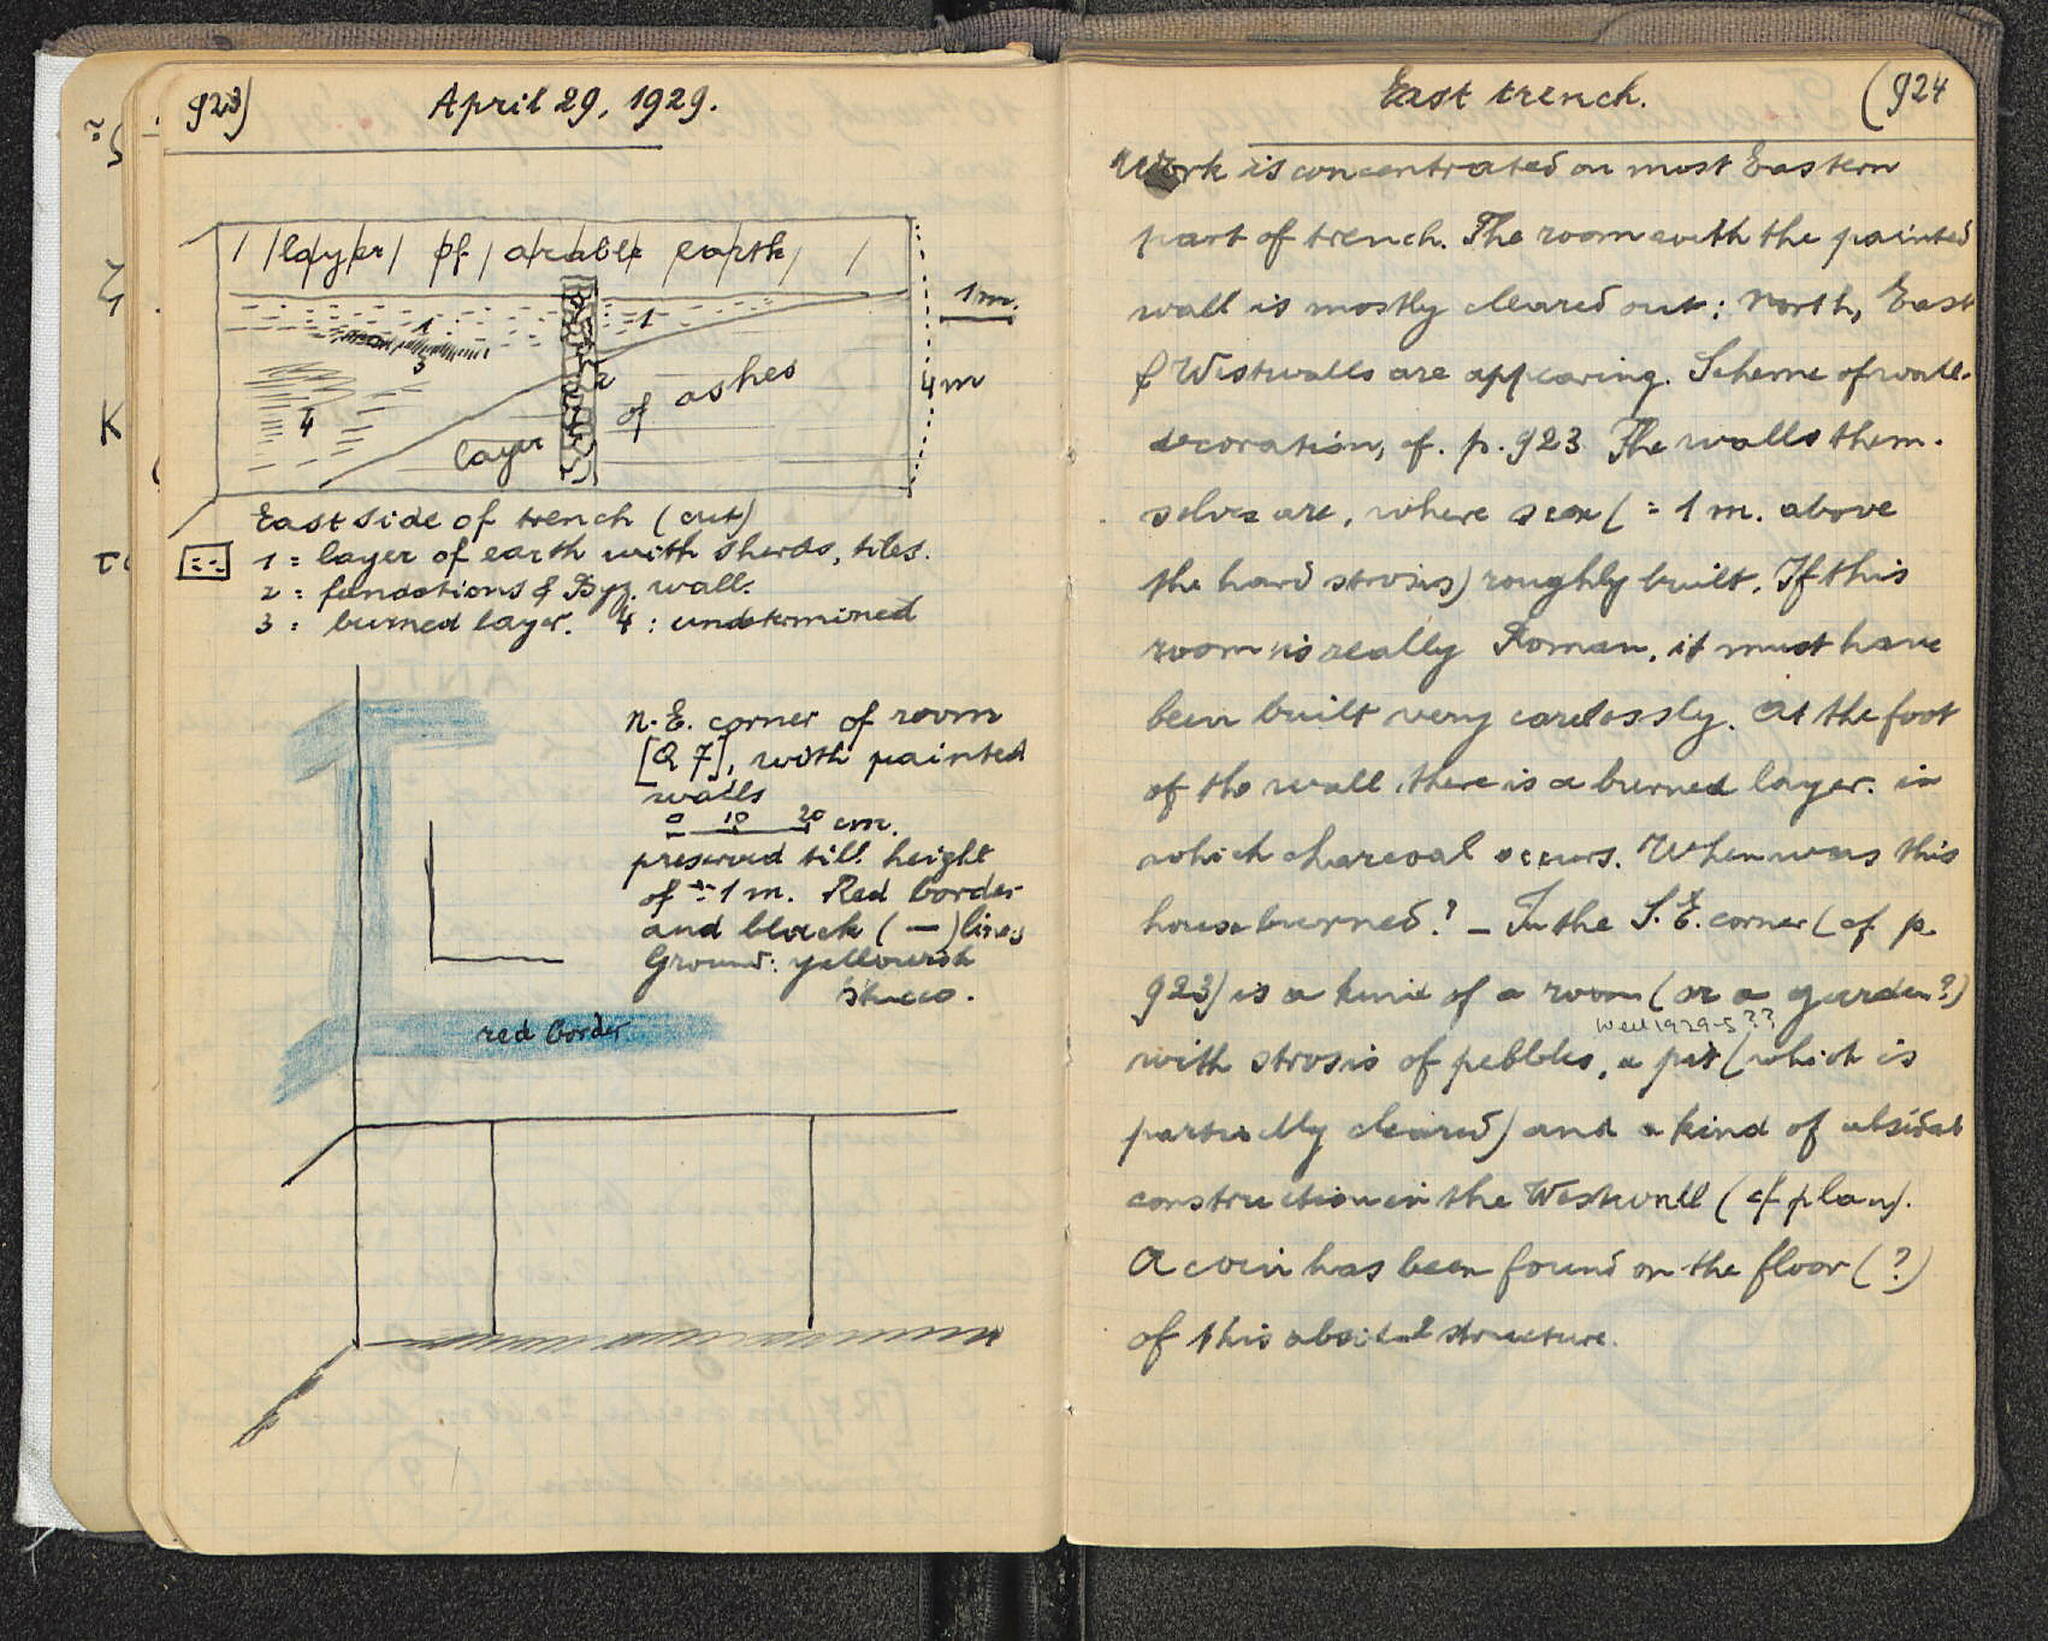 923)
April 29, 1929.
layer of arable earth
1m.
1
1
3
2
4m
4
layer of ashes
East side of trench (cut)
1 = layer of earth with sherds, tiles.
2 = fundations & Byz. wall.
3 = burned layer. 4 : undetermined
N.E. corner of room
[Q 7], with painted
walls
0 10 20 cm.
preserved till height
of ± 1 m. Red border
and black (—) lines
Ground: yellowish
stucco.
red border
East trench.
(924
Work is concentrated on most Eastern
part of trench. The room with the painted
wall is mostly cleared out: North, East
& Westwalls are appearing. Scheme of wall-
decoration, cf. p. 923 The walls them-
selves are, where seen (= 1 m. above
the hard strosis) roughly built. If this
room is really Roman, it must have
been built very carelessly. At the foot
of the wall there is a burned layer. in
which charcoal occurs. When was this
house burned? – In the S.E. corner (cf. p.
923) is a kind of a room (or a garden?)
Well 1929-5??
with strosis of pebbles, a pit (which is
partially cleared) and a kind of absidal
construction in the Westwall (cf plan).
A coin has been found on the floor (?)
of this absidal structure.